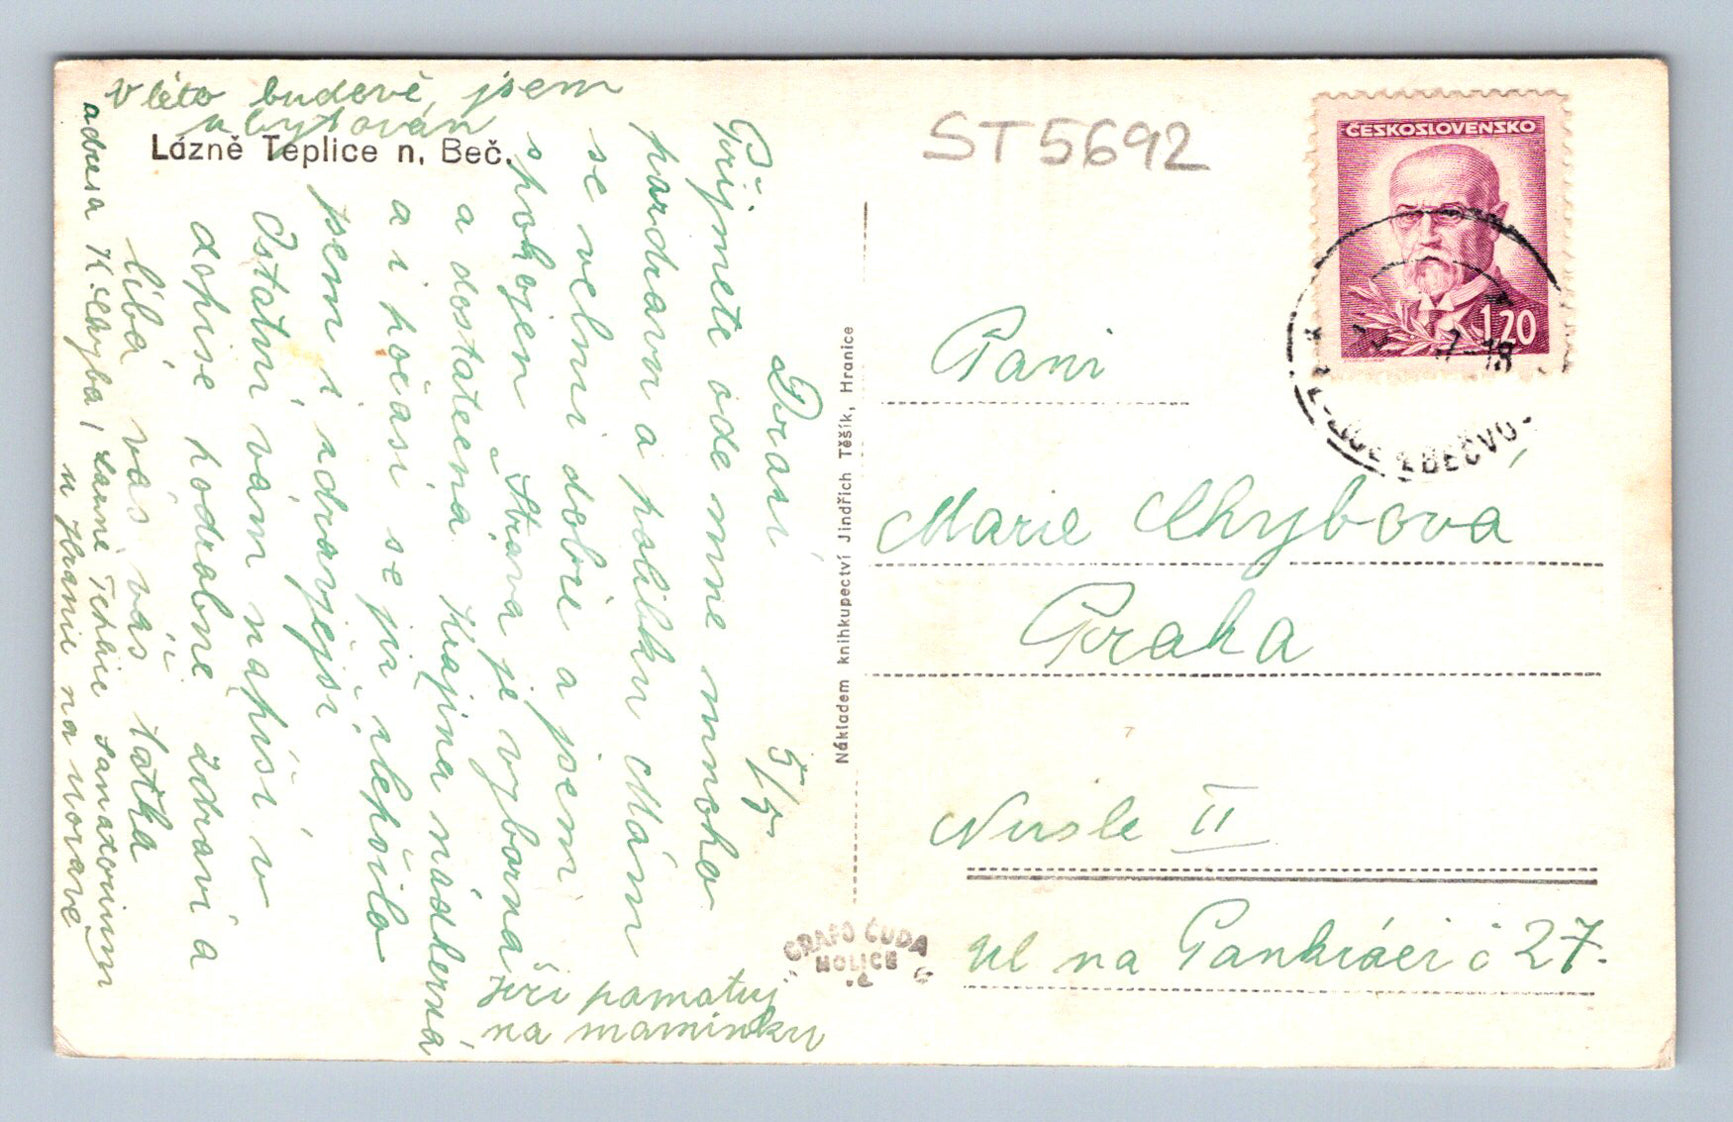 V této budově, jsem
ubytován
Lázně Teplice n. Beč.
ST5692
ČESKOSLOVENSKO
1,20
7-18
BEČVO
Drazí 5/5
Přijmete ode mne mnoho
pozdravu a polibku Mám
se velmi dobře a jsem
spokojen Strava je vyborna
a dostatečna Krajina nádherná
a i počasí se již zlepšilo
jsem i zdravější
Ostatní vám napíši v
dopise podrobne zdraví a
líbá vás váš taťka
adresa K. Chyba, Lázně Teplice Sanatorium
u Hranic na Moravě
Jiří pamatuj
na maminku
Nákladem knihkupectví Jindřich Těšík, Hranice
GRAFO ČUDA
HOLICE
Paní
Marie Chybová
Praha
Nusle II
Ul na Pankráci č 27.